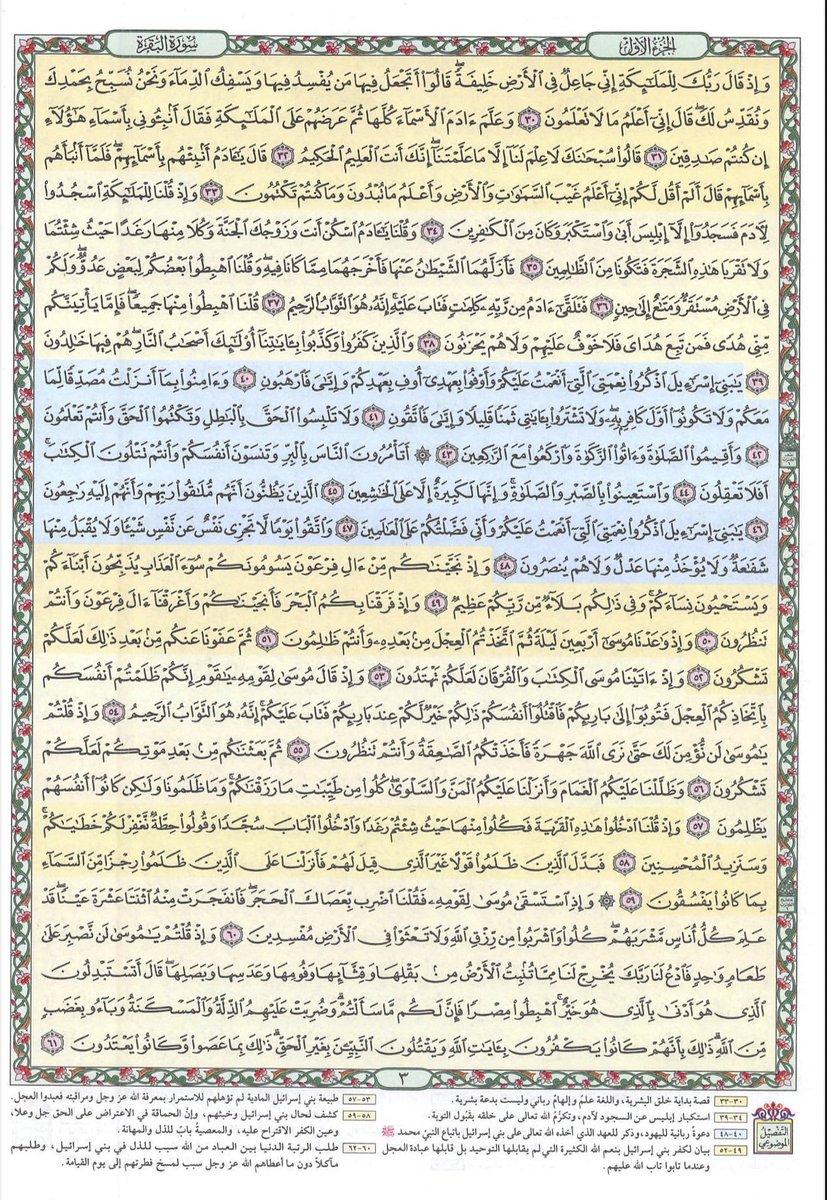 الجزء الأول
سورة البقرة
وَإِذْ قَالَ رَبُّكَ لِلْمَلَٰٓئِكَةِ إِنِّي جَاعِلٌ فِي ٱلْأَرْضِ خَلِيفَةً ۖ قَالُوٓا۟ أَتَجْعَلُ فِيهَا مَن يُفْسِدُ فِيهَا وَيَسْفِكُ ٱلدِّمَآءَ وَنَحْنُ نُسَبِّحُ بِحَمْدِكَ
وَنُقَدِّسُ لَكَ ۖ قَالَ إِنِّيٓ أَعْلَمُ مَا لَا تَعْلَمُونَ ٣٠ وَعَلَّمَ ءَادَمَ ٱلْأَسْمَآءَ كُلَّهَا ثُمَّ عَرَضَهُمْ عَلَى ٱلْمَلَٰٓئِكَةِ فَقَالَ أَنۢبِـُٔونِي بِأَسْمَآءِ هَٰٓؤُلَآءِ
إِن كُنتُمْ صَٰدِقِينَ ٣١ قَالُوا۟ سُبْحَٰنَكَ لَا عِلْمَ لَنَآ إِلَّا مَا عَلَّمْتَنَآ ۖ إِنَّكَ أَنتَ ٱلْعَلِيمُ ٱلْحَكِيمُ ٣٢ قَالَ يَٰٓـَٔادَمُ أَنۢبِئْهُم بِأَسْمَآئِهِمْ ۖ فَلَمَّآ أَنۢبَأَهُم
بِأَسْمَآئِهِمْ قَالَ أَلَمْ أَقُل لَّكُمْ إِنِّيٓ أَعْلَمُ غَيْبَ ٱلسَّمَٰوَٰتِ وَٱلْأَرْضِ وَأَعْلَمُ مَا تُبْدُونَ وَمَا كُنتُمْ تَكْتُمُونَ ٣٣ وَإِذْ قُلْنَا لِلْمَلَٰٓئِكَةِ ٱسْجُدُوا۟
لِـَٔادَمَ فَسَجَدُوٓا۟ إِلَّآ إِبْلِيسَ أَبَىٰ وَٱسْتَكْبَرَ وَكَانَ مِنَ ٱلْكَٰفِرِينَ ٣٤ وَقُلْنَا يَٰٓـَٔادَمُ ٱسْكُنْ أَنتَ وَزَوْجُكَ ٱلْجَنَّةَ وَكُلَا مِنْهَا رَغَدًا حَيْثُ شِئْتُمَا
وَلَا تَقْرَبَا هَٰذِهِ ٱلشَّجَرَةَ فَتَكُونَا مِنَ ٱلظَّٰلِمِينَ ٣٥ فَأَزَلَّهُمَا ٱلشَّيْطَٰنُ عَنْهَا فَأَخْرَجَهُمَا مِمَّا كَانَا فِيهِ ۖ وَقُلْنَا ٱهْبِطُوا۟ بَعْضُكُمْ لِبَعْضٍ عَدُوٌّ ۖ وَلَكُمْ
فِي ٱلْأَرْضِ مُسْتَقَرٌّ وَمَتَٰعٌ إِلَىٰ حِينٍ ٣٦ فَتَلَقَّىٰٓ ءَادَمُ مِن رَّبِّهِۦ كَلِمَٰتٍ فَتَابَ عَلَيْهِ ۚ إِنَّهُۥ هُوَ ٱلتَّوَّابُ ٱلرَّحِيمُ ٣٧ قُلْنَا ٱهْبِطُوا۟ مِنْهَا جَمِيعًا ۖ فَإِمَّا يَأْتِيَنَّكُم
مِّنِّي هُدًى فَمَن تَبِعَ هُدَايَ فَلَا خَوْفٌ عَلَيْهِمْ وَلَا هُمْ يَحْزَنُونَ ٣٨ وَٱلَّذِينَ كَفَرُوا۟ وَكَذَّبُوا۟ بِـَٔايَٰتِنَآ أُو۟لَٰٓئِكَ أَصْحَٰبُ ٱلنَّارِ ۖ هُمْ فِيهَا خَٰلِدُونَ
٣٩ يَٰبَنِيٓ إِسْرَٰٓءِيلَ ٱذْكُرُوا۟ نِعْمَتِيَ ٱلَّتِيٓ أَنْعَمْتُ عَلَيْكُمْ وَأَوْفُوا۟ بِعَهْدِيٓ أُوفِ بِعَهْدِكُمْ وَإِيَّٰيَ فَٱرْهَبُونِ ٤٠ وَءَامِنُوا۟ بِمَآ أَنزَلْتُ مُصَدِّقًا لِّمَا
مَعَكُمْ وَلَا تَكُونُوٓا۟ أَوَّلَ كَافِرٍۭ بِهِۦ ۖ وَلَا تَشْتَرُوا۟ بِـَٔايَٰتِي ثَمَنًا قَلِيلًا وَإِيَّٰيَ فَٱتَّقُونِ ٤١ وَلَا تَلْبِسُوا۟ ٱلْحَقَّ بِٱلْبَٰطِلِ وَتَكْتُمُوا۟ ٱلْحَقَّ وَأَنتُمْ تَعْلَمُونَ
٤٢ وَأَقِيمُوا۟ ٱلصَّلَوٰةَ وَءَاتُوا۟ ٱلزَّكَوٰةَ وَٱرْكَعُوا۟ مَعَ ٱلرَّٰكِعِينَ ٤٣ ۞ أَتَأْمُرُونَ ٱلنَّاسَ بِٱلْبِرِّ وَتَنسَوْنَ أَنفُسَكُمْ وَأَنتُمْ تَتْلُونَ ٱلْكِتَٰبَ ۚ
أَفَلَا تَعْقِلُونَ ٤٤ وَٱسْتَعِينُوا۟ بِٱلصَّبْرِ وَٱلصَّلَوٰةِ ۚ وَإِنَّهَا لَكَبِيرَةٌ إِلَّا عَلَى ٱلْخَٰشِعِينَ ٤٥ ٱلَّذِينَ يَظُنُّونَ أَنَّهُم مُّلَٰقُوا۟ رَبِّهِمْ وَأَنَّهُمْ إِلَيْهِ رَٰجِعُونَ
٤٦ يَٰبَنِيٓ إِسْرَٰٓءِيلَ ٱذْكُرُوا۟ نِعْمَتِيَ ٱلَّتِيٓ أَنْعَمْتُ عَلَيْكُمْ وَأَنِّي فَضَّلْتُكُمْ عَلَى ٱلْعَٰلَمِينَ ٤٧ وَٱتَّقُوا۟ يَوْمًا لَّا تَجْزِي نَفْسٌ عَن نَّفْسٍ شَيْـًٔا وَلَا يُقْبَلُ مِنْهَا
شَفَٰعَةٌ وَلَا يُؤْخَذُ مِنْهَا عَدْلٌ وَلَا هُمْ يُنصَرُونَ ٤٨ وَإِذْ نَجَّيْنَٰكُم مِّنْ ءَالِ فِرْعَوْنَ يَسُومُونَكُمْ سُوٓءَ ٱلْعَذَابِ يُذَبِّحُونَ أَبْنَآءَكُمْ
وَيَسْتَحْيُونَ نِسَآءَكُمْ ۚ وَفِي ذَٰلِكُم بَلَآءٌ مِّن رَّبِّكُمْ عَظِيمٌ ٤٩ وَإِذْ فَرَقْنَا بِكُمُ ٱلْبَحْرَ فَأَنجَيْنَٰكُمْ وَأَغْرَقْنَآ ءَالَ فِرْعَوْنَ وَأَنتُمْ
تَنظُرُونَ ٥٠ وَإِذْ وَٰعَدْنَا مُوسَىٰٓ أَرْبَعِينَ لَيْلَةً ثُمَّ ٱتَّخَذْتُمُ ٱلْعِجْلَ مِنۢ بَعْدِهِۦ وَأَنتُمْ ظَٰلِمُونَ ٥١ ثُمَّ عَفَوْنَا عَنكُم مِّنۢ بَعْدِ ذَٰلِكَ لَعَلَّكُمْ
تَشْكُرُونَ ٥٢ وَإِذْ ءَاتَيْنَا مُوسَى ٱلْكِتَٰبَ وَٱلْفُرْقَانَ لَعَلَّكُمْ تَهْتَدُونَ ٥٣ وَإِذْ قَالَ مُوسَىٰ لِقَوْمِهِۦ يَٰقَوْمِ إِنَّكُمْ ظَلَمْتُمْ أَنفُسَكُم
بِٱتِّخَاذِكُمُ ٱلْعِجْلَ فَتُوبُوٓا۟ إِلَىٰ بَارِئِكُمْ فَٱقْتُلُوٓا۟ أَنفُسَكُمْ ذَٰلِكُمْ خَيْرٌ لَّكُمْ عِندَ بَارِئِكُمْ فَتَابَ عَلَيْكُمْ ۚ إِنَّهُۥ هُوَ ٱلتَّوَّابُ ٱلرَّحِيمُ ٥٤ وَإِذْ قُلْتُمْ
يَٰمُوسَىٰ لَن نُّؤْمِنَ لَكَ حَتَّىٰ نَرَى ٱللَّهَ جَهْرَةً فَأَخَذَتْكُمُ ٱلصَّٰعِقَةُ وَأَنتُمْ تَنظُرُونَ ٥٥ ثُمَّ بَعَثْنَٰكُم مِّنۢ بَعْدِ مَوْتِكُمْ لَعَلَّكُمْ
تَشْكُرُونَ ٥٦ وَظَلَّلْنَا عَلَيْكُمُ ٱلْغَمَامَ وَأَنزَلْنَا عَلَيْكُمُ ٱلْمَنَّ وَٱلسَّلْوَىٰ ۖ كُلُوا۟ مِن طَيِّبَٰتِ مَا رَزَقْنَٰكُمْ ۖ وَمَا ظَلَمُونَا وَلَٰكِن كَانُوٓا۟ أَنفُسَهُمْ
يَظْلِمُونَ ٥٧ وَإِذْ قُلْنَا ٱدْخُلُوا۟ هَٰذِهِ ٱلْقَرْيَةَ فَكُلُوا۟ مِنْهَا حَيْثُ شِئْتُمْ رَغَدًا وَٱدْخُلُوا۟ ٱلْبَابَ سُجَّدًا وَقُولُوا۟ حِطَّةٌ نَّغْفِرْ لَكُمْ خَطَٰيَٰكُمْ ۚ
وَسَنَزِيدُ ٱلْمُحْسِنِينَ ٥٨ فَبَدَّلَ ٱلَّذِينَ ظَلَمُوا۟ قَوْلًا غَيْرَ ٱلَّذِي قِيلَ لَهُمْ فَأَنزَلْنَا عَلَى ٱلَّذِينَ ظَلَمُوا۟ رِجْزًا مِّنَ ٱلسَّمَآءِ
بِمَا كَانُوا۟ يَفْسُقُونَ ٥٩ ۞ وَإِذِ ٱسْتَسْقَىٰ مُوسَىٰ لِقَوْمِهِۦ فَقُلْنَا ٱضْرِب بِّعَصَاكَ ٱلْحَجَرَ ۖ فَٱنفَجَرَتْ مِنْهُ ٱثْنَتَا عَشْرَةَ عَيْنًا ۖ قَدْ
عَلِمَ كُلُّ أُنَاسٍ مَّشْرَبَهُمْ ۖ كُلُوا۟ وَٱشْرَبُوا۟ مِن رِّزْقِ ٱللَّهِ وَلَا تَعْثَوْا۟ فِي ٱلْأَرْضِ مُفْسِدِينَ ٦٠ وَإِذْ قُلْتُمْ يَٰمُوسَىٰ لَن نَّصْبِرَ عَلَىٰ
طَعَامٍ وَٰحِدٍ فَٱدْعُ لَنَا رَبَّكَ يُخْرِجْ لَنَا مِمَّا تُنۢبِتُ ٱلْأَرْضُ مِنۢ بَقْلِهَا وَقِثَّآئِهَا وَفُومِهَا وَعَدَسِهَا وَبَصَلِهَا ۖ قَالَ أَتَسْتَبْدِلُونَ
ٱلَّذِي هُوَ أَدْنَىٰ بِٱلَّذِي هُوَ خَيْرٌ ۚ ٱهْبِطُوا۟ مِصْرًا فَإِنَّ لَكُم مَّا سَأَلْتُمْ ۗ وَضُرِبَتْ عَلَيْهِمُ ٱلذِّلَّةُ وَٱلْمَسْكَنَةُ وَبَآءُو بِغَضَبٍ
مِّنَ ٱللَّهِ ۗ ذَٰلِكَ بِأَنَّهُمْ كَانُوا۟ يَكْفُرُونَ بِـَٔايَٰتِ ٱللَّهِ وَيَقْتُلُونَ ٱلنَّبِيِّـۧنَ بِغَيْرِ ٱلْحَقِّ ۗ ذَٰلِكَ بِمَا عَصَوا۟ وَّكَانُوا۟ يَعْتَدُونَ ٦١
٣
التفصيل الموضوعي
٣٠-٣٣ قصة بداية خلق البشرية، واللغة علمٌ وإلهامٌ رباني وليست بدعة بشرية.
٣٤-٣٩ استكبار إبليس عن السجود لآدم، وتكرُّم الله تعالى على خلقه بقَبُول التوبة.
٤٠-٤٨ دعوةٌ ربانية لليهود، وذكر للعهد الذي أخذه الله تعالى على بني إسرائيل بأتباع النبيِّ محمد ﷺ
٤٩-٥٢ بيان لكفر بني إسرائيل بنعم الله الكثيرة التي لم يقابلها التوحيد بل قابلها عبادة العجل
وعندما تابوا تاب الله عليهم.
٥٣-٥٧ طبيعة بني إسرائيل المادية لم تؤهلهم للاستمرار بمعرفة الله عز وجل ومراقبته فعبدوا العجل.
٥٨-٥٩ كشف لحال بني إسرائيل وخبثهم، وإنَّ الحماقة في الاعتراض على الحق جل وعلا،
وعين الكفر الاقتراح عليه، والمعصيةُ بابٌ للذل والمهانة.
٦٠-٦٢ طلب الرتبة الدنيا بين العباد من الله سبب للذل في بني إسرائيل، وطلبهم
مآكلاً دون ما أعطاهم الله عز وجل سبب لمسخ فطرتهم إلى يوم القيامة.